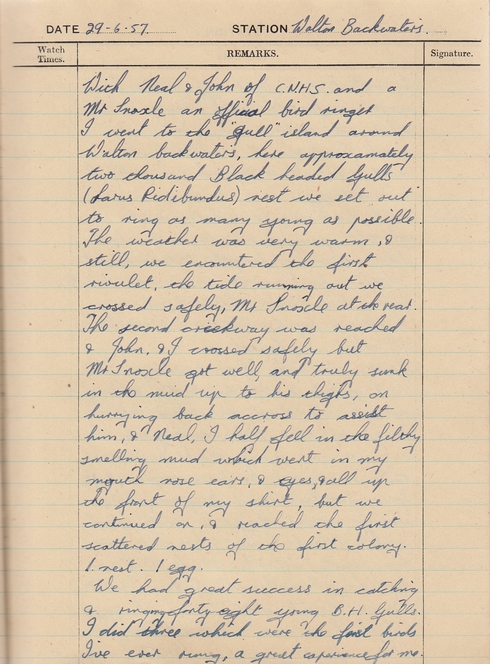 DATE 29-6-57. STATION Walton Backwaters.
Watch Times. REMARKS. Signature.
With Neal & John of C.N.H.S. and a
Mr Snoxle an official bird ringer
I went to the "gull" island around
Walton backwaters, here approxamately
two thousand Black headed Gulls
(Larus Ridibundus) nest we set out
to ring as many young as possible.
The weather was very warm, &
still, we encountered the first
rivulet, the tide running out we
crossed safely, Mr Snoxle at the rear.
The second creekway was reached
& John, & I crossed safely but
Mr Snoxle got well, and truly sunk
in the mud up to his thighs, on
hurrying back accross to assist
him, & Neal, I half fell in the filthy
smelling mud which went in my
mouth nose ears, & eyes, & all up
the front of my shirt, but we
continued on, & reached the first
scattered nests of the first colony.
1 nest. 1 egg.
We had great success in catching
& ringing forty eight young B.H. Gulls.
I did three which were the first birds
I've ever rung, a great experience for me.